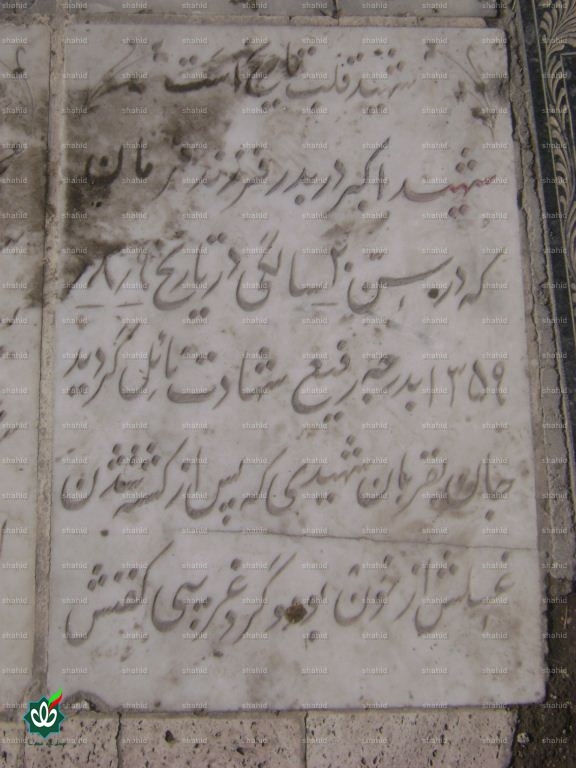 شهید قلب تاریخ است
شهید اکبر در بدر فرزند مان
که در سن ۲۰ سالگی در تاریخ
۱۳۵۹ بدرجه رفیع شهادت نائل گردید
جان بقربان شهیدی که پس از کشته شدن
غسلش از خون بود و گرد غریبی کفنش
shahid